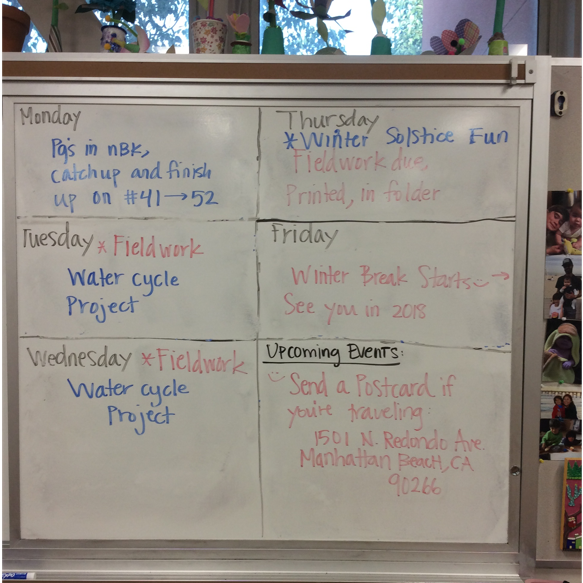 Monday
Pgs in nBk,
catchup and finish
up on #41→52
Tuesday * Fieldwork
Water cycle
Project
Wednesday * Fieldwork
Water cycle
Project
Thursday
*Winter Solstice Fun
Fieldwork due,
Printed, in folder
Friday
Winter Break Starts →
See you in 2018
Upcoming Events:
Send a Postcard if
you're traveling:
1501 N. Redondo Ave.
Manhattan Beach, CA
90266